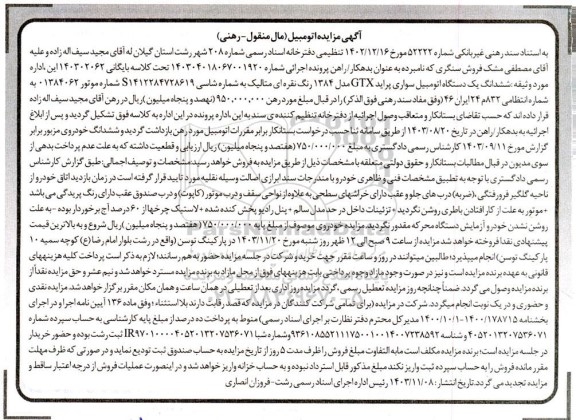 آگهی مزایده اتومبیل (مال منقول - رهنی)
به استناد سند رهنی غیربانکی شماره ۵۲۲۲۲ مورخ ۱۴۰۲/۱۲/۱۶ تنظیمی دفترخانه اسناد رسمی شماره ۲۰۸ شهر رشت استان گیلان له آقای مجید سیف اله زاده و علیه
آقای مصطفی مشک فروش سنگری که نامبرده به عنوان بدهکار/راهن پرونده اجرائی شماره ۱۴۰۳۰۴۰۱۸۰۶۷۰۰۱۹۲۰ تحت کلاسه بایگانی ۱۴۰۳۰۲۰۶۲ این اداره
مورد وثیقه: ششدانگ یک دستگاه اتومبیل سواری پراید GTX مدل ۱۳۸۴ رنگ نقره ای متالیک به شماره شاسی S۱۴۱۲۲۸۴۷۲۸۶۱۹ شماره موتور ۰۱۳۸۴۰۶۲ به
شماره انتظامی ۸۳۲م۲۴ ایران ۴۶ (وفق مفاد سند رهنی فوق الذکر) را در قبال مبلغ مورد رهن ۹۵۰.۰۰۰.۰۰۰ (نهصد و پنجاه میلیون) ریال در رهن آقای مجید سیف اله زاده
قرار داده اند که حسب تقاضای بستانکار و متعاقب وصول اجرائیه از دفترخانه تنظیم کننده ی سند به این اداره پرونده در این اداره به کلاسه فوق تشکیل گردید و پس از ابلاغ
اجرائیه به بدهکار/راهن در تاریخ ۱۴۰۳/۰۸/۲۰ از طریق سامانه ثنا حسب درخواست بستانکار برابر مقررات اتومبیل مورد رهن بازداشت گردید و ششدانگ خودروی مزبور برابر
گزارش مورخ ۱۴۰۳/۰۹/۱۱ کارشناس رسمی دادگستری به مبلغ ۷۵۰/۰۰۰/۰۰۰ (هفتصد و پنجاه میلیون) ریال ارزیابی و قطعیت داشته که به علت عدم پرداخت بدهی از
سوی مدیون در قبال مطالبات بستانکار و حقوق دولتی متعلقه با مشخصات ذیل از طریق مزایده به فروش خواهد رسید. مشخصات و توصیف اجمالی: طبق گزارش کارشناس
رسمی دادگستری با توجه به تطبیق مشخصات فنی و ظاهری خودرو با مندرجات سند ابرازی اصالت وسیله نقلیه مورد تایید قرار گرفته است در زمان بازدید اتاق خودرو از
ناحیه گلگیر فرورفتگی، (ضربه) درب های جلو و عقب دارای خراشهای سطحی به علاوه از نواحی سقف و درب موتور (کاپوت) و درب صندوق عقب دارای رنگ پریدگی می باشد
+ موتور به علت از کار افتادن باطری روشن نگردید + تزئینات داخل در حد مدل سالم + پنل رادیو پخش کننده شده + لاستیک چرخها از ۶۰ درصد آج برخوردار بوده - به علت
روشن نشدن خودرو آزمایش دستگاه محرکه مقدور نگردید. مزایده خودروی موصوف از مبلغ پایه ۷۵۰/۰۰۰/۰۰۰ (هفتصد و پنجاه میلیون) ریال شروع و به بالاترین قیمت
پیشنهادی نقدا فروخته خواهد شد مزایده از ساعت ۹ صبح الی ۱۲ ظهر روز شنبه مورخ ۱۴۰۳/۱۱/۲۰ در پارکینگ توسن (واقع در رشت بلوار امام رضا (ع) کوچه سمیه ۱۰
پارکینگ توسن) انجام میپذیرد؛ طالبین میتوانند در روز و ساعت مقرر جهت خرید و شرکت در جلسه مزایده حضور به هم رسانند؛ لازم به ذکر است پرداخت کلیه هزینههای
قانونی به عهده برنده مزایده است و نیز در صورت وجود مازاد وجوه پرداختی بابت هزینههای فوق از محل مازاد به برنده مزایده مسترد خواهد شد و نیم عشر و حق مزایده نقدا از
برنده مزایده وصول می گردد. ضمنا چنانچه روز مزایده تعطیل رسمی، گردد مزایده روز اداری بعد از تعطیلی در همان ساعت و همان مکان مقرر برگزار خواهد شد. مزایده نقدی
و حضوری و در یک نوبت انجام میگردد. شرکت در مزایده (برای تمامی شرکت کنندگان در مزایده که قصد رقابت دارند بلااستثناء؛ وفق ماده ۱۳۶ آیین نامه اجرا و در اجرای
بخشنامه ۱۴۰۰/۱۷۸۷۱۵-۱۴۰۰/۱۰/۰۱ مدیرکل محترم دفتر نظارت بر اجرای اسناد رسمی) منوط به پرداخت ده درصد از مبلغ پایه کارشناسی به حساب سپرده شماره
۴۰۵۲۰۱۳۲۰۷۵۳۶۰۷۱ و شناسه ۹۳۶۱۰۸۵۵۲۱۱۱۷۵۰۰۱۰۰۱۴۰۰۷۲۳۸۵۹۲ و شماره شبا IR۹۷۰۱۰۰۰۰۴۰۵۲۰۱۳۲۰۷۵۳۶۰۷۱ ثبت رشت بوده و حضور خریدار
در جلسه مزایده است؛ برنده مزایده مکلف است مابه التفاوت مبلغ فروش را ظرف مدت ۵ روز از تاریخ مزایده به حساب صندوق ثبت تودیع نماید و در صورتی که ظرف مهلت
مقرر مانده فروش را به حساب سپرده ثبت واریز نکند مبلغ مذکور قابل استرداد نبوده و به حساب خزانه واریز خواهد شد و در اینصورت عملیات فروش از درجه اعتبار ساقط و
مزایده تجدید می گردد. تاریخ انتشار: ۱۴۰۳/۱۱/۰۸ رئیس اداره اجرای اسناد رسمی رشت - فروزان انصاری